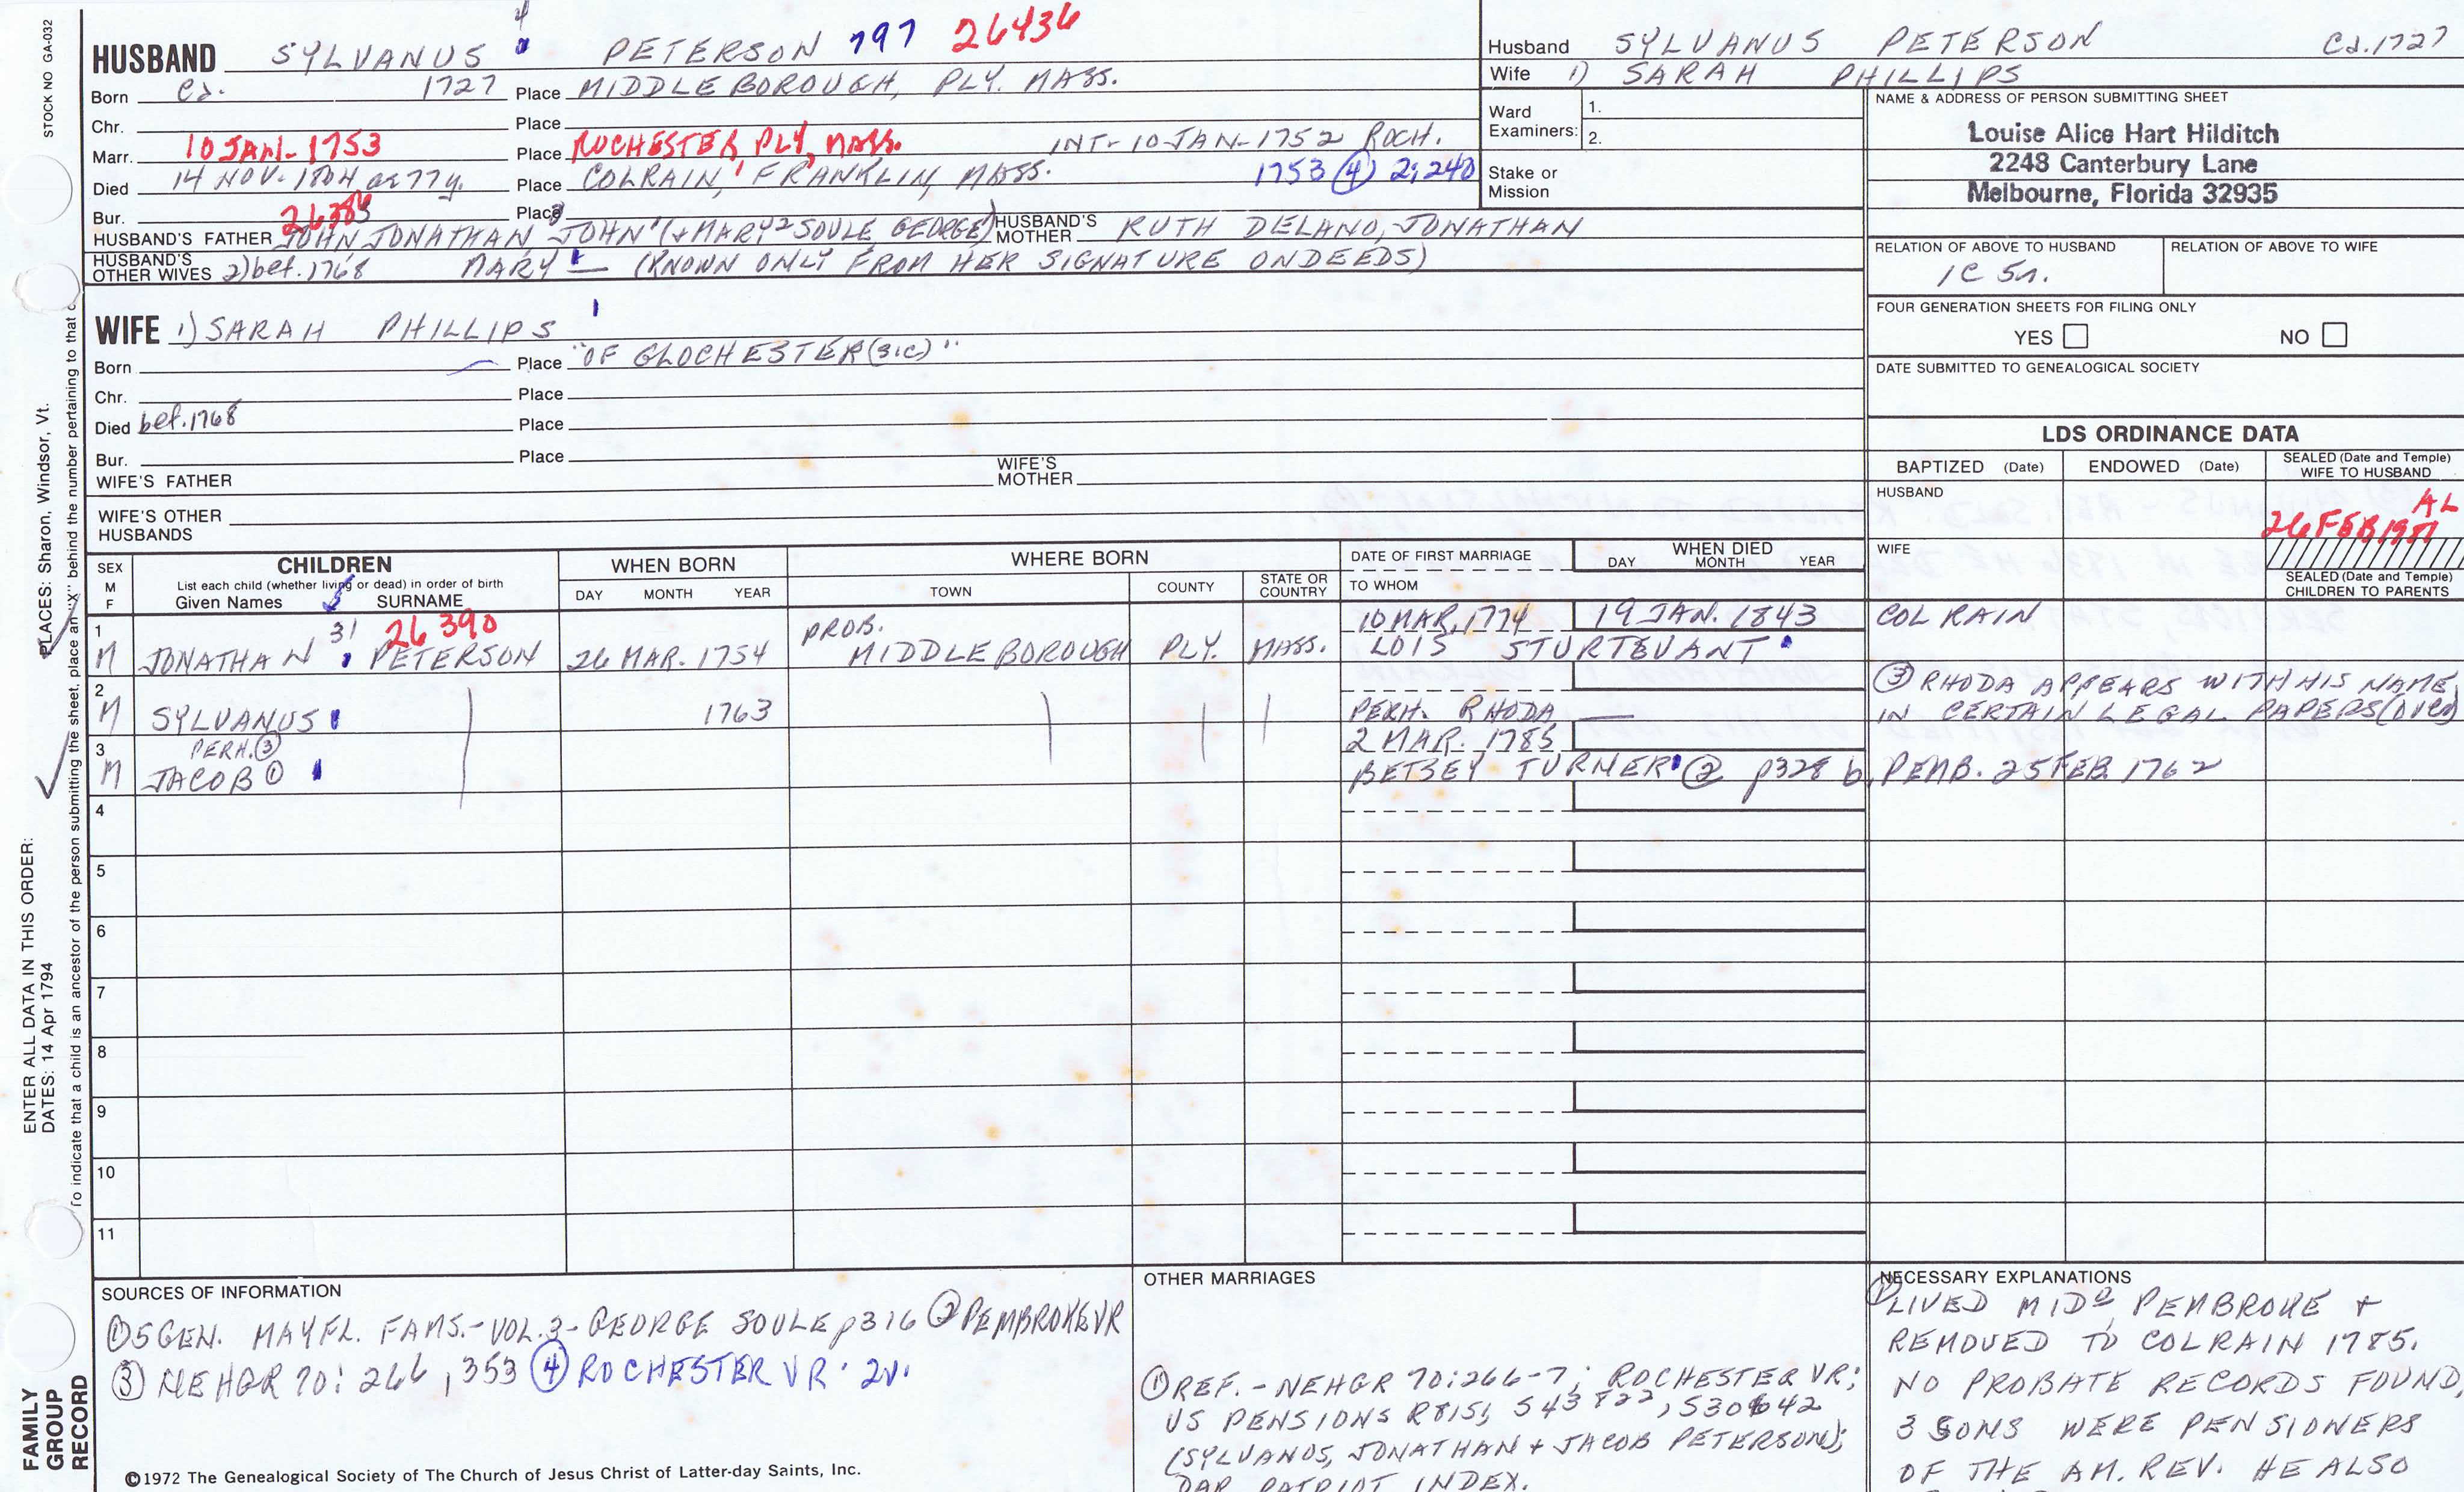 STOCK NO GA-032
HUSBAND SYLVANUS 4 PETERSON 797 26436
Born Ca. 1727 Place MIDDLEBOROUGH, PLY. MASS.
Chr. Place
Marr. 10 JAN- 1753 Place ROCHESTER, PLY, MASS. INT- 10-JAN-1752 ROCH.
Died 14 NOV. 1804 ae 77y. Place COLRAIN, FRANKLIN, MASS. 1753 ④ 2;240
Bur. Place
HUSBAND'S FATHER JONATHAN, JOHN (+MARY² SOULE, GEORGE) HUSBAND'S MOTHER RUTH DELANO, JONATHAN
HUSBAND'S OTHER WIVES 2) bef. 1768 MARY — (KNOWN ONLY FROM HER SIGNATURE ON DEEDS)
Husband SYLVANUS PETERSON Ca. 1727
Wife 1) SARAH PHILLIPS
Ward Examiners: 1.
2.
Stake or Mission
NAME & ADDRESS OF PERSON SUBMITTING SHEET
Louise Alice Hart Hilditch
2248 Canterbury Lane
Melbourne, Florida 32935
RELATION OF ABOVE TO HUSBAND RELATION OF ABOVE TO WIFE
1C 5r.
FOUR GENERATION SHEETS FOR FILING ONLY
YES NO
DATE SUBMITTED TO GENEALOGICAL SOCIETY
WIFE 1) SARAH PHILLIPS
Born Place "OF GLOCHESTER (SIC)"
Chr. Place
Died bef. 1768 Place
Bur. Place
WIFE'S FATHER WIFE'S MOTHER
WIFE'S OTHER HUSBANDS
LDS ORDINANCE DATA
BAPTIZED (Date) ENDOWED (Date) SEALED (Date and Temple) WIFE TO HUSBAND
HUSBAND AL
26 FEB 1981
WIFE
SEALED (Date and Temple) CHILDREN TO PARENTS
SEX M F CHILDREN WHEN BORN WHERE BORN DATE OF FIRST MARRIAGE WHEN DIED
List each child (whether living or dead) in order of birth
Given Names SURNAME DAY MONTH YEAR TOWN COUNTY STATE OR COUNTRY TO WHOM DAY MONTH YEAR
1 31 26 390 PROB. 10 MAR, 1774 19 JAN. 1843 COLRAIN
M JONATHAN PETERSON 26 MAR. 1754 MIDDLEBOROUGH PLY. MASS. LOIS STURTEVANT
2 ③ RHODA APPEARS WITH HIS NAME
M SYLVANUS 1763 PERH. RHODA — IN CERTAIN LEGAL PAPERS (over)
3 PERH. ③ 2 MAR. 1785
M JACOB ① BETSEY TURNER ② p328 b. PEMB. 25 FEB. 1762
4
5
6
7
8
9
10
11
SOURCES OF INFORMATION
① 5 GEN. MAYFL. FAMS.-VOL. 3- GEORGE SOULE p316 ② PEMBROKE VR
③ NEHGR 70: 266, 353 ④ ROCHESTER VR. 2v.
©1972 The Genealogical Society of The Church of Jesus Christ of Latter-day Saints, Inc.
OTHER MARRIAGES
① REF.- NEHGR 70:266-7; ROCHESTER VR;
US PENSIONS R8151, S43822, S30642
(SYLVANUS, JONATHAN + JACOB PETERSON);
DAR PATRIOT INDEX.
NECESSARY EXPLANATIONS
① LIVED MIDº PEMBROKE +
REMOVED TO COLRAIN 1785.
NO PROBATE RECORDS FOUND,
3 SONS WERE PENSIONERS
OF THE AM. REV. HE ALSO
FAMILY GROUP RECORD
ENTER ALL DATA IN THIS ORDER:
DATES: 14 Apr 1794
PLACES: Sharon, Windsor, Vt.
To indicate that a child is an ancestor of the person submitting the sheet, place an "X" behind the number pertaining to that